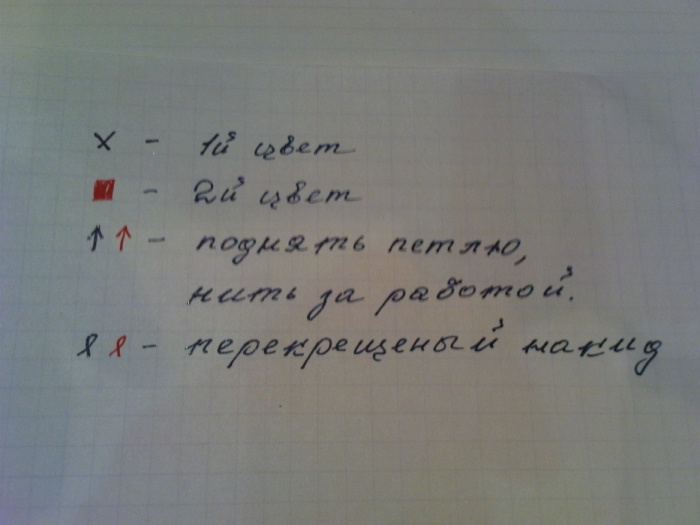 × - 1й цвет
■ - 2й цвет
↑ ↑ - поднять петлю,
нить за работой.
- перекрещеный накид